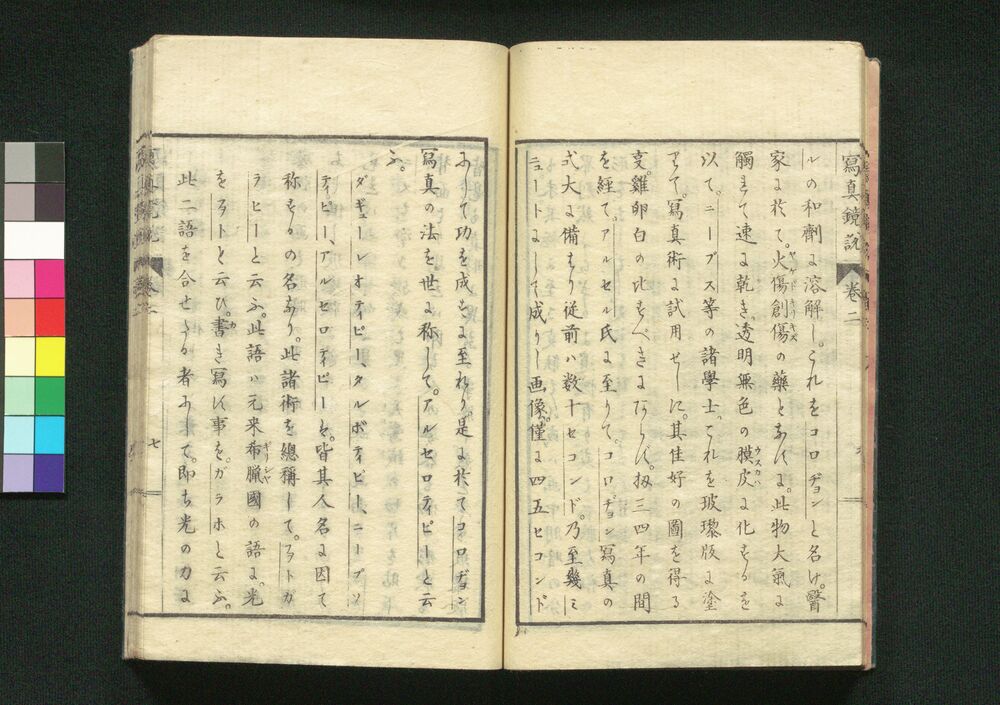 寫真鏡說 卷二
ルの和劑に溶解し。これをコロヂヨンと名け。醫
家に於て。火傷創傷の藥となすに。此物大氣に
觸れて速に乾き。透明無色の膜皮に化するを
以て。ニーブス等の諸學士。これを玻瓈版に塗
りて寫真術に試用せしに。其佳好の圖を得る
㕝。雞卵白の比すべきにあらず。扨三四年の間
を經て。アルセル氏に至りて。コロヂヨン寫真の
式大に備はり從前ハ数十セコンド。乃至幾ミ
ニュートにして成りし画像。僅に四五セコンド
にして功を成すに至れり。是に於てコロヂヨン
寫真の法を世に称して。アルセロティピーと云
ふ。
ダギューレオティピー、タルボティピー、ニープソ
ティピー、アルセロティピーと。皆其人名に因て
称するの名なり。此諸術を總稱して。ヲトガ
ラヒーと云ふ。此語ハ元来希臘國の語に。光
をヲトと云ひ。書き寫す事を。ガラホと云ふ。
此二語を合せたる者にて。即ち光の力に
七